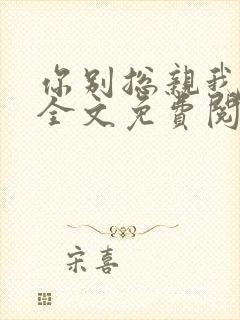 你别总亲我
全文免费阅
宋喜